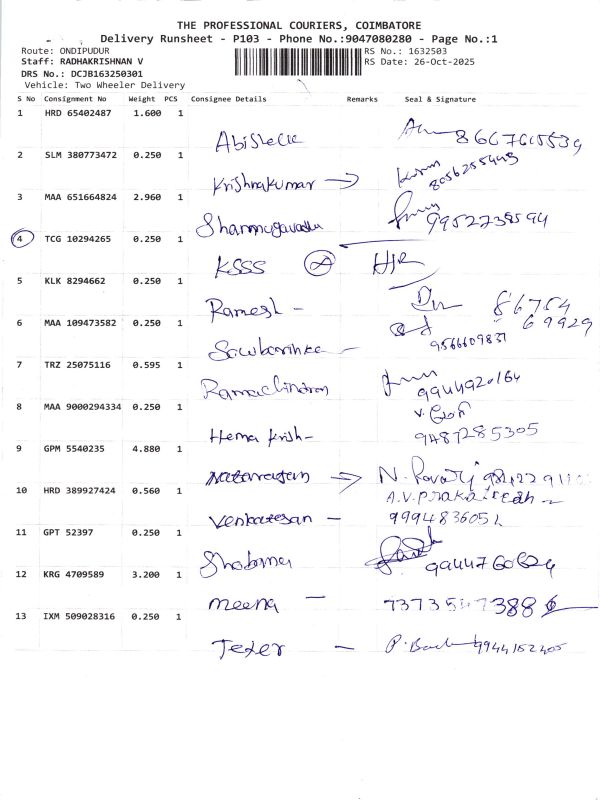 THE PROFESSIONAL COURIERS, COIMBATORE
Delivery Runsheet - P103 - Phone No.:9047080280 - Page No.:1
Route: ONDIPUDUR
RS No.: 1632503
Staff: RADHAKRISHNAN V
RS Date: 26-Oct-2025
DRS No.: DCJB163250301
Vehicle: Two Wheeler Delivery
S No Consignment No Weight PCS Consignee Details Remarks Seal & Signature
1 HRD 65402487 1.600 1
2 SLM 380773472 0.250 1
Krishnakumar
3 MAA 651664824 2.960 1
9952738594
4 TCG 10294265 0.250 1
KSSS
5 KLK 8294662 0.250 1
Ramesh - 86754
69929
6 MAA 109473582 0.250 1
9566609837
7 TRZ 25075116 0.595 1
Ramachindran 9944920164
8 MAA 9000294334 0.250 1
Hema Krish- 9487285305
9 GPM 5540235 4.880 1
Natarajan
10 HRD 389927424 0.560 1
Venkatesan -
11 GPT 52397 0.250 1
Shobana 9944760624
12 KRG 4709589 3.200 1
meena -
13 IXM 509028316 0.250 1
- 9944152405